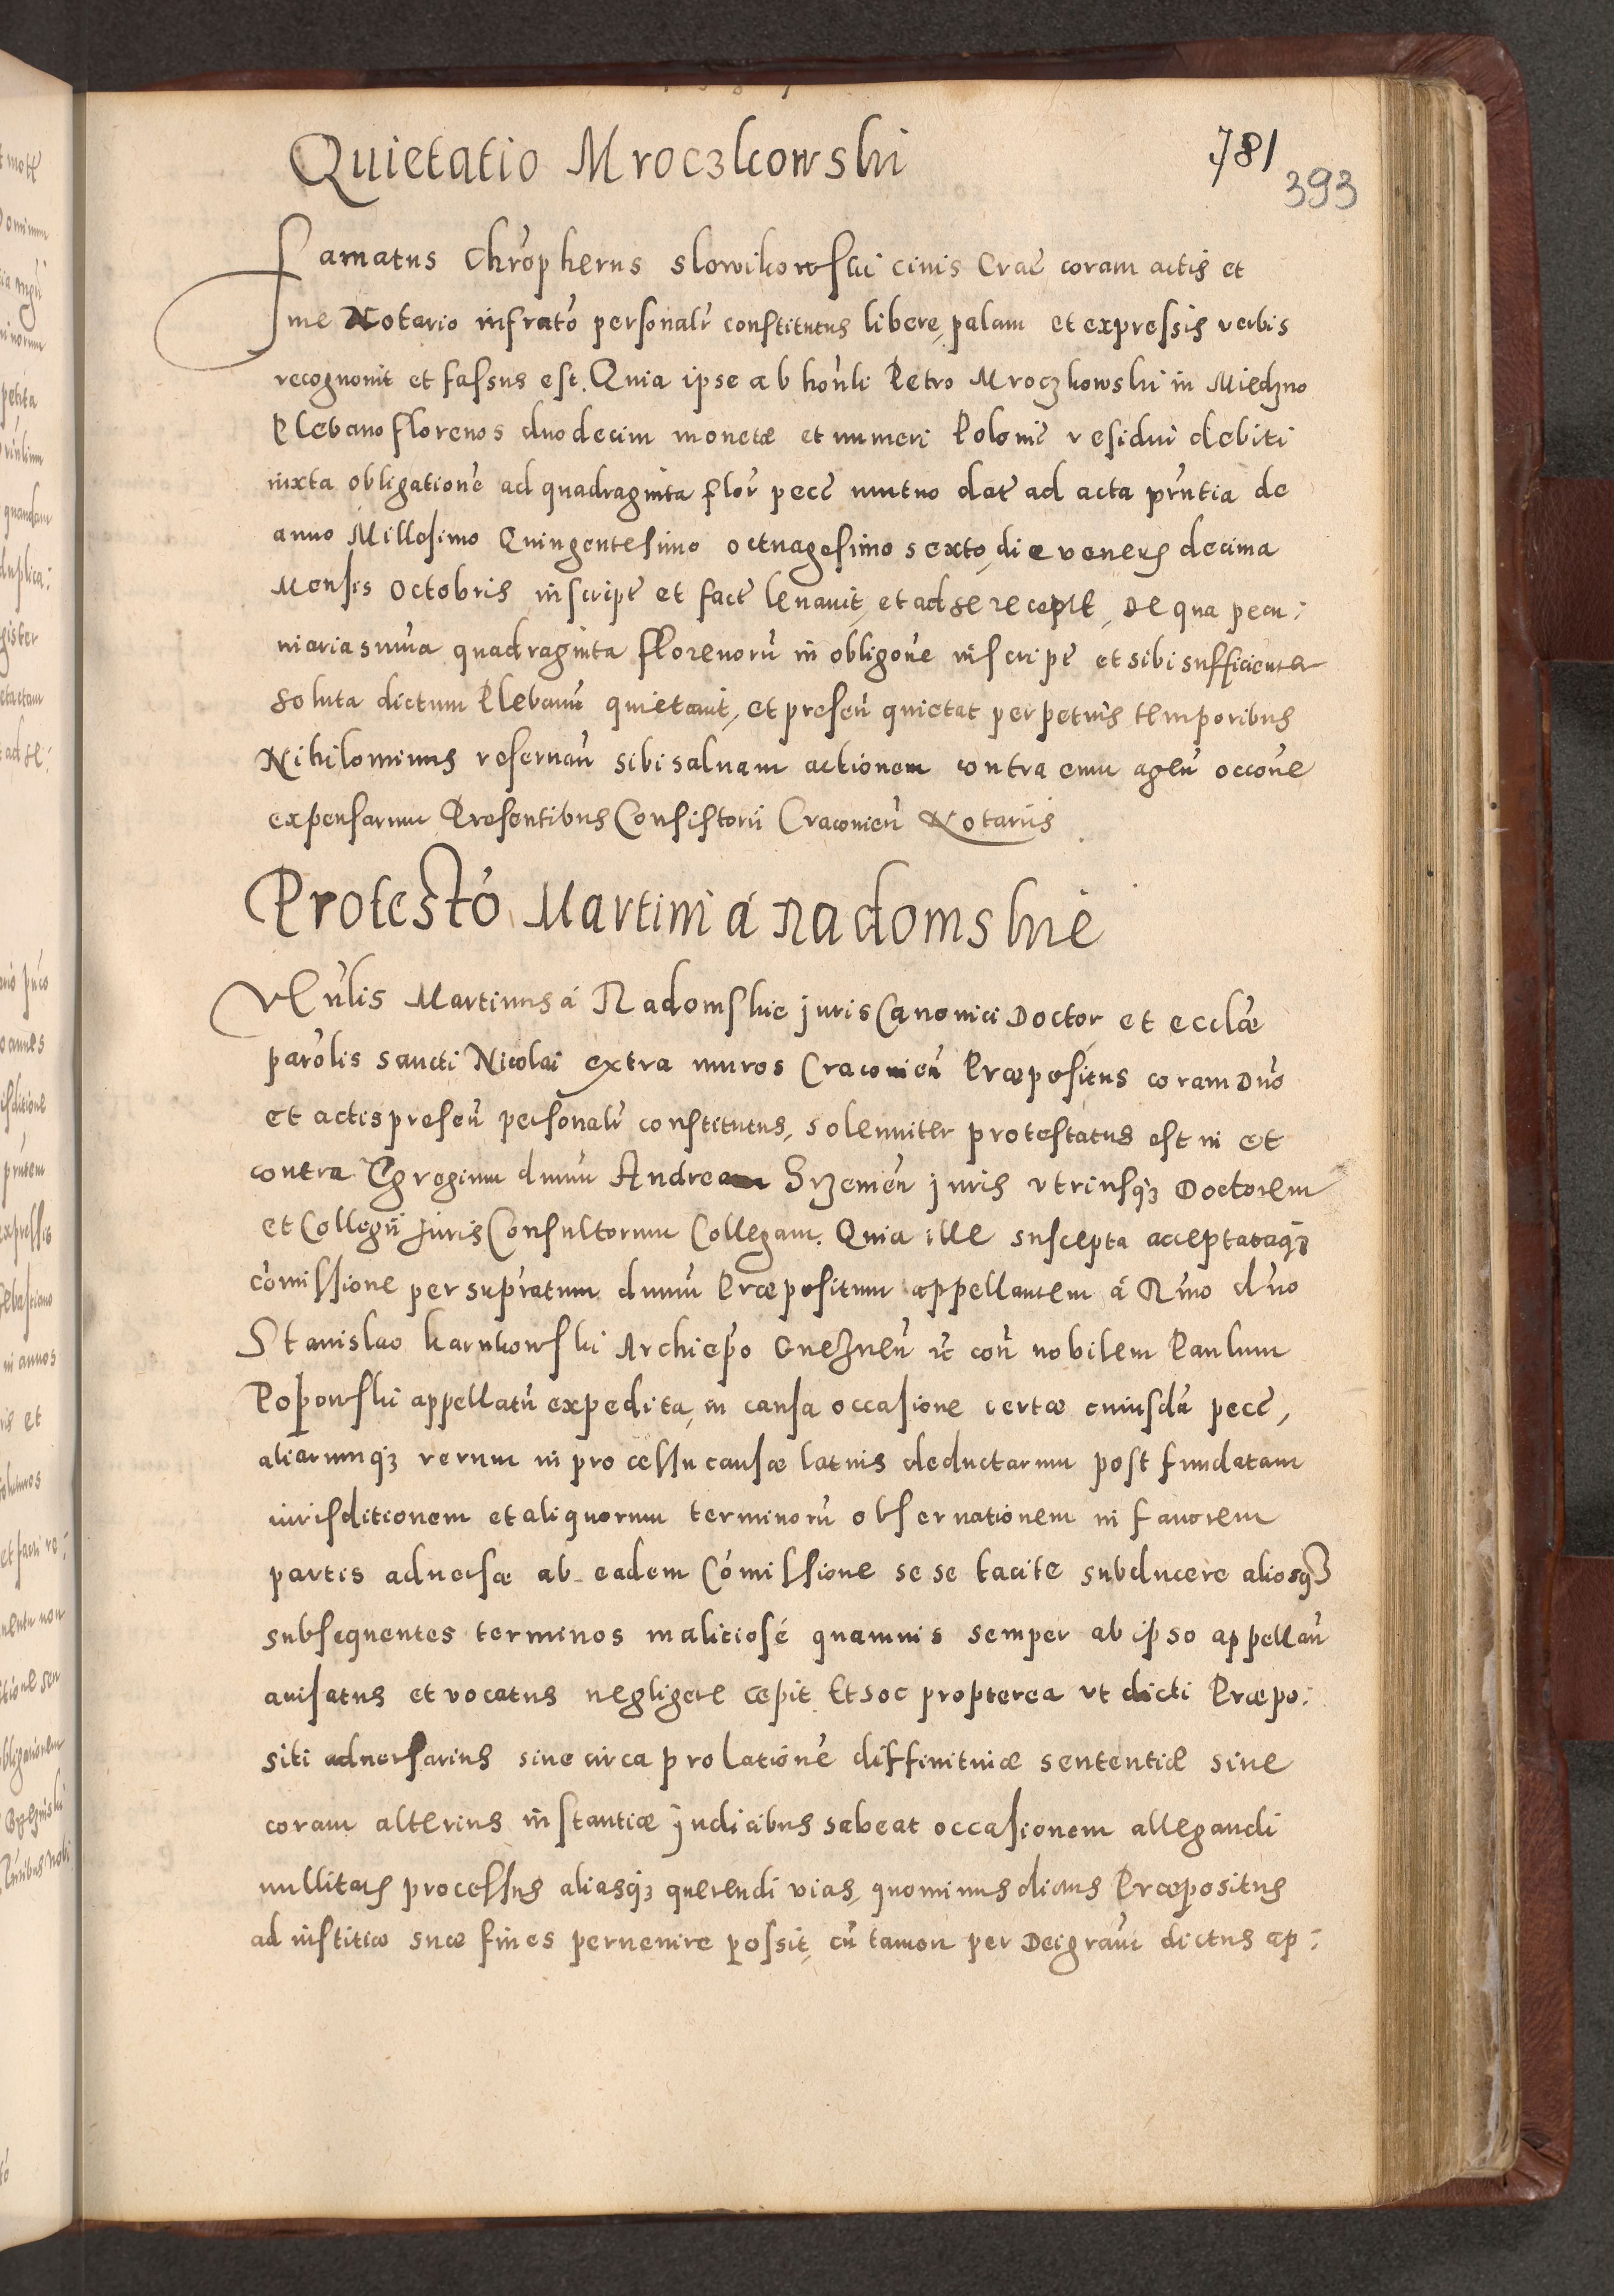 Quietatio Mroczkowski
781
393
Famatus Chrõpherus Slowikowski civis Crac̃ coram actis et
me Notario infrat̃o personalr̃ constitutus libere, palam et expressis verbis
recognovit et fassus est. Quia ipse ab hoñli Petro Mroczkowski in Miedzno
Plebano florenos duodecim monetæ et numeri Polonic̃ residui debiti
iuxta obligationẽ ad quadraginta flor̃ pecc̃ mutuo dat̃ ad acta pr̃ntia de
anno Millesimo Quingentesimo octuagesimo sexto, die veneris decima
Mensis Octobris inscript̃ et fact̃ levavit, et ad se recepit, de qua pecu:
niaria sum̃a quadraginta florenorũ in obligoñe inscript̃ et sibi sufficienter
soluta dictum Plebanũ quietavit, et preseñ quietat perpetuis temporibus
Nihilominus reservañ sibi salvam actionem contra eum ageñ occoñe
expensarum Presentibus Consistorii Cracovieñ Notariis
Protestõ Martini á Radomskie
Veñlis Martinus á Radomskie juris Canonici Doctor, et ecclæ̃
parõlis sancti Nicolai extra muros Cracovieñ Præpositus coram Dño
et actis preseñ personalr̃ constitutus, solenniter protestatus est in et
contra Egregium dnũm Andream Srzenieñ juris utriusq₃ Doctorem
et Collegii Juris Consultorum Collegam. Quia ille suscepta acceptataq₃
cõmissione per supratum̃ dnũm Præpositum appellantem á Rm̃o dño
Stanislao Karnkowski Archiep̃o Gnezneñ etc̃ coñ nobilem Paulum
Popowski appellatũ expedita, in causa occasione certæ cuiusdã pecc̃,
aliarumq₃ rerum in processu causæ latius deductarum post fundatam
iurisditionem et aliquorum terminorũ observationem in favorem
partis adversæ ab eadem Cõmissione se se tacite subducere aliosq₃
subsequentes terminos malitiosé quamvis semper ab ipso appellañ
avisatus et vocatus negligere cepit. Et hoc propterea ut dicti Præpo:
siti adversarius sive circa prolationẽ diffinitivæ sententiæ sive
coram alterius instantiæ judicibus habeat occasionem allegandi
nullitatis processus aliasq₃ querendi vias, quominus dictus Præpositus
ad iustitiæ suæ fines pervenire possit, cũ tamen per Dei gratiã dictus ap: